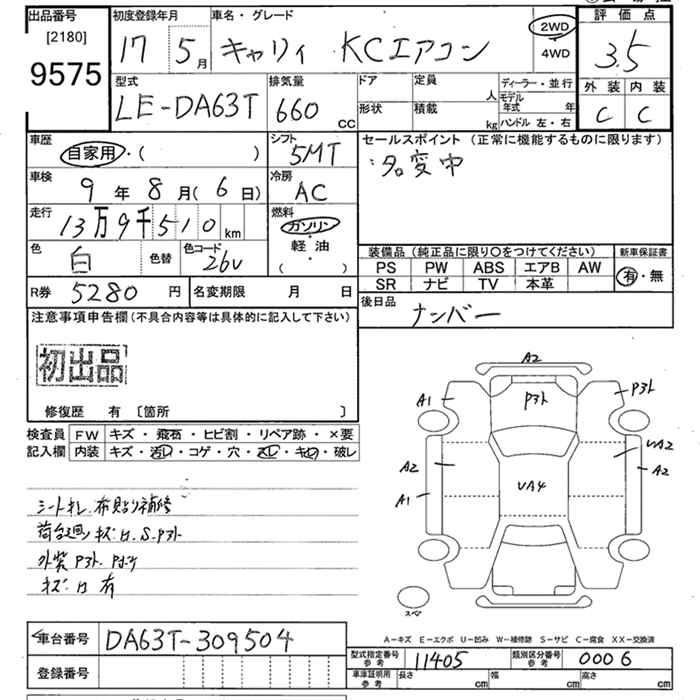 出品番号 [2180] 9575
初度登録年月 17 5月
車名・グレード キャリィ KCエアコン
2WD
4WD
評価点 3.5
外装 C 内装 C
型式 LE-DA63T
排気量 660 CC
ドア 形状
定員 人
積載 kg
ディーラー・並行
モデル年式 年
ハンドル 左・右
車歴 自家用・( )
シフト 5MT
セールスポイント (正常に機能するものに限ります)
:名変中
車検 9年 8月(6日)
冷房 AC
走行 13万9千510km
燃料 ガソリン・軽油・( )
色 白 色替 色コード 26U
装備品(純正品に限り○をつけてください)
PS PW ABS エアB AW
SR ナビ TV 本革
新車保証書 有・無
R券 5280円
名変期限 月 日
後日品 ナンバー
注意事項申告欄(不具合内容等は具体的に記入して下さい)
初出品
修復歴 有 〔箇所 〕
検査員記入欄
FW キズ・飛石・ヒビ割・リペア跡・×要
内装 キズ・汚レ・コゲ・穴・スレ・キレ・破レ
シートキレ 布貼り補修
荷台廻りキズ.凹.S.Pヌケ
キズ.凹 有
A2
A1
A2
A1
A2
UA4
スペア
A-キズ E-エクボ U-凹み W-補修跡 S-サビ C-腐食 XX-交換済
車台番号 DA63T-309504
登録番号
型式指定番号 参考 11405
類別区分番号 参考 0006
車庫証明用 参考 長さ cm 幅 cm 高さ cm